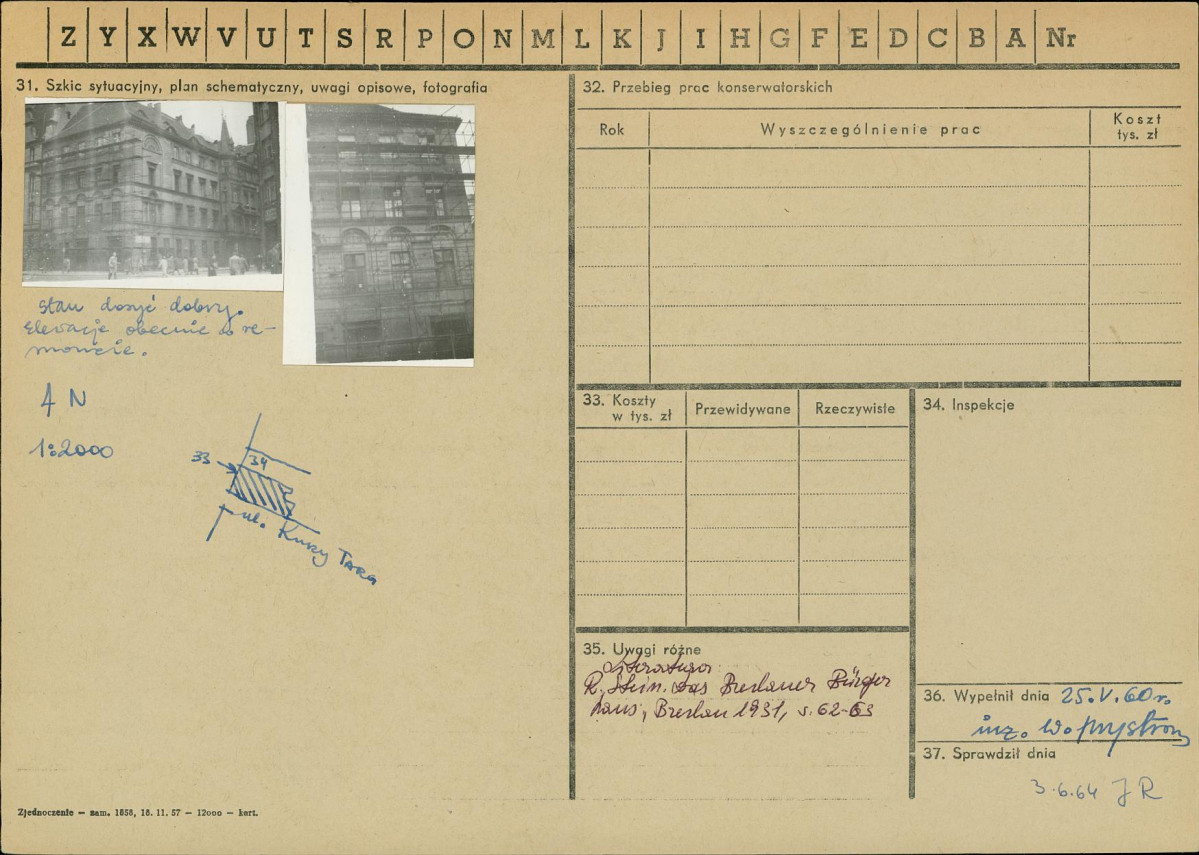 Z Y X W V U T S R P O N M L K J I H G F E D C B A Nr
31. Szkic sytuacyjny, plan schematyczny, uwagi opisowe, fotografia
stan dosyć dobry.
Elewacje obecnie w re-
moncie.
N
1:2000
33
34
ul. Kurzy Targ
32. Przebieg prac konserwatorskich
Rok
Wyszczególnienie prac
Koszt
tys. zł
33. Koszty
w tys. zł
Przewidywane
Rzeczywiste
34. Inspekcje
35. Uwagi różne
Literatura
R. Stein. Das Breslauer Bürger
haus, Breslau 1931, s. 62-63
36. Wypełnił dnia 25.V.60 r.
inż. W.
37. Sprawdził dnia
3.6.64 JR
Zjednoczenie — zam. 1656, 16. 11. 57 — 12000 — kart.